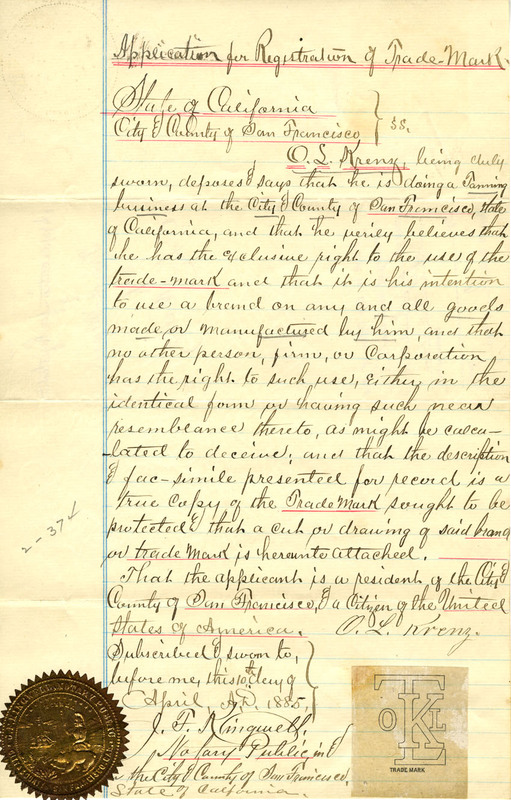 Application for Registration of Trade-Mark.
State of California
City & County of San Francisco } SS.
O. L. Krenz, being duly
sworn, deposes & says that he is doing a Tanning
business at the City & County of San Francisco, State
of California, and that he verily believes that
he has the exclusive right to the use of the
trade-mark and that it is his intention
to use a brand on any and all goods
made or manufactured by him, and that
no other person, firm, or Corporation
has the right to such use, either in the
identical form or having such near
resemblance thereto, as might be calcu-
lated to deceive; and that the description
& fac-simile presented for record is a
true copy of the Trade Mark sought to be
protected & that a cut or drawing of said brand
or trade Mark is hereunto attached.
That the applicant is a resident of the City &
County of San Francisco, & a Citizen of the United
States of America. O. L. Krenz.
Subscribed & sworn to,
before me, this 10th day of
April, A.D. 1885,
J. F. Kingwell,
Notary Public in &
the City & County of San Francisco,
State of California.
2-374
TK
O L
TRADE MARK